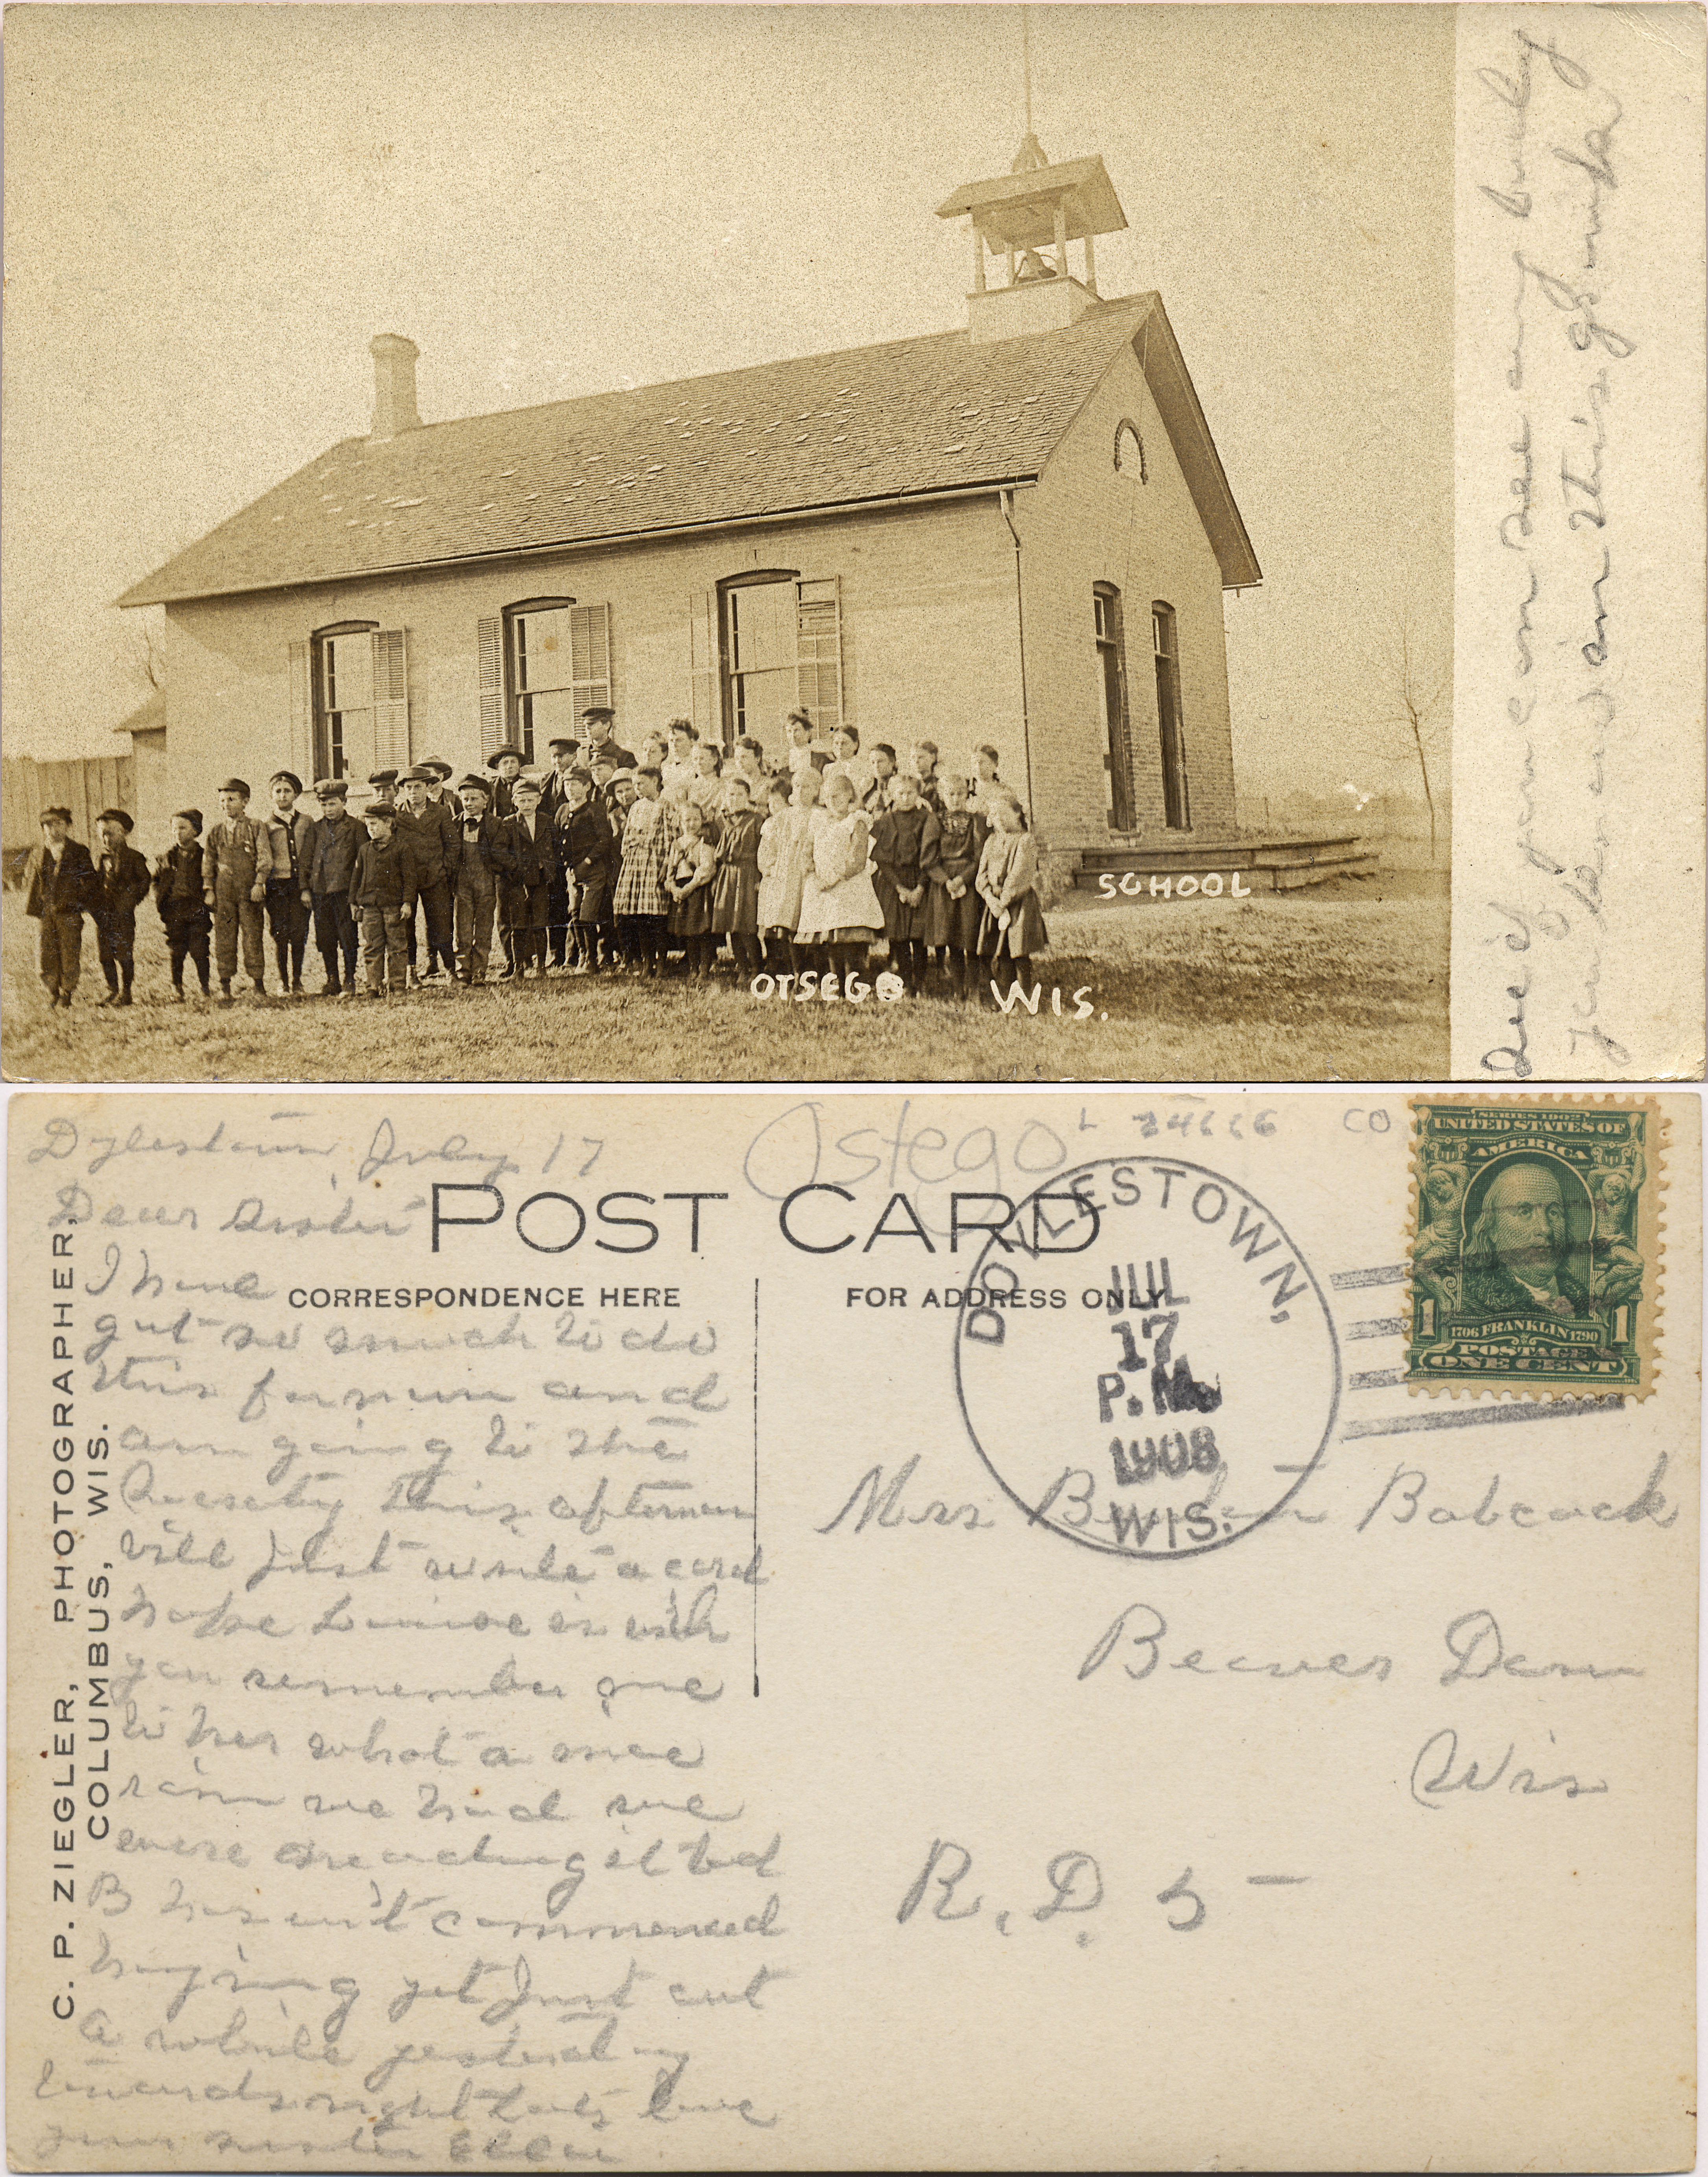 See if you can see any body
you know in this group
SCHOOL
OTSEGO WIS.
Ostego L 24666 CO
Dylestown July 17
Dear Sister
I have
got so much to do
this forenoon and
am going to the
this afternoon
will just write a card
hope is with
you remember me
to her what a nice
rain we had we
were needing it bad
B hasen't commenced
haying yet Just cut
a while yesterday
towards night love
your sister Ellen
POST CARD
CORRESPONDENCE HERE
FOR ADDRESS ONLY
C. P. ZIEGLER, PHOTOGRAPHER,
COLUMBUS, WIS.
DOYLESTOWN,
JUL
17
P.M.
1908
WIS.
SERIES 1902
UNITED STATES OF
AMERICA
1 1706 FRANKLIN 1790 1
POSTAGE
ONE CENT
Mrs Babcock
Beaver Dam
Wis
R. D. 5